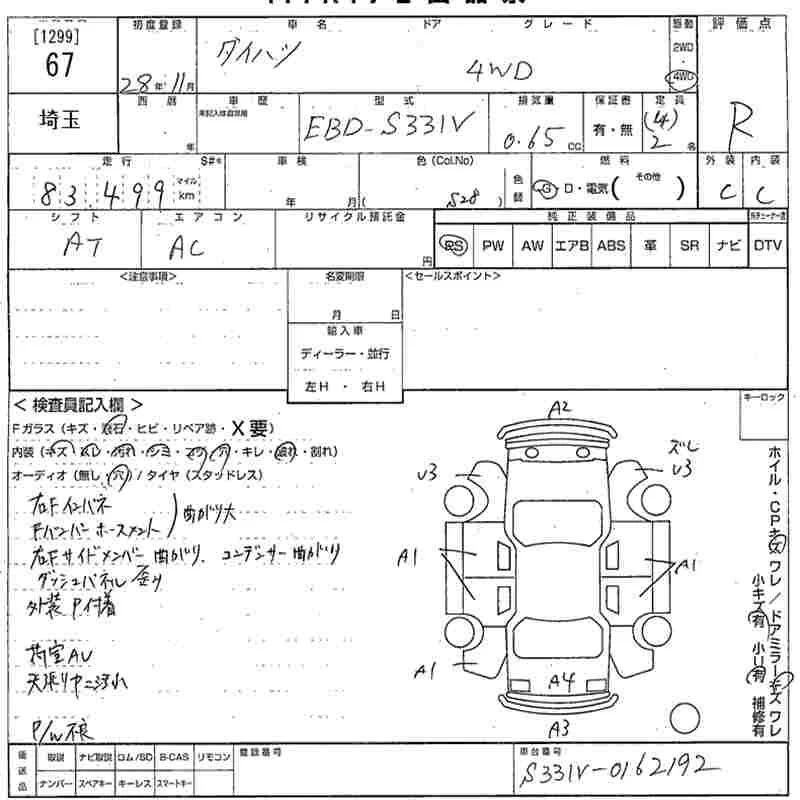 初度登録 車名 ドア グレード 駆動 評価点
[1299]
67
28年11月 ダイハツ 4WD 2WD 4WD R
埼玉
西暦 車歴 型式 排気量 保証書 定員
年 EBD-S331V 0.65 CC 有・無 (4) 2 名
走行 S#* 車検 色(Col.No) 燃料 外装 内装
83,499 マイル km 年 月( S28 ) 色替 G・D・電気( その他 ) C C
シフト エアコン リサイクル預託金 純正装備品
AT AC 円 PS PW AW エアB ABS 革 SR ナビ DTV
<注意事項> 名変期限 <セールスポイント>
月 日
輸入車
ディーラー・並行
左H ・ 右H
< 検査員記入欄 > キーロック
Fガラス(キズ・飛石・ヒビ・リペア跡・X要)
内装(キズ・スレ・汚れ・シミ・コゲ・穴・キレ・破れ・割れ)
オーディオ(無し・穴)/タイヤ(スタッドレス)
右Fインパネ
Fバンパーホースメント 曲がり大
右Fサイドメンバー曲がり、コンデンサー曲がり
ダッシュパネル歪み
外装P付着
荷室AU
天張りヤニ汚れ
P/W不良
A2
U3
ズレ
U3
A1
A1
A1
A4
A3
ホイル・CPキズ ワレ/ドアミラーキズ ワレ
小キズ有 小U有 補修有
後送品 取説 ナビ取説 ロム/SD B-CAS リモコン 登録番号 車台番号
ナンバー スペアキー キーレス スマートキー S331V-0162192